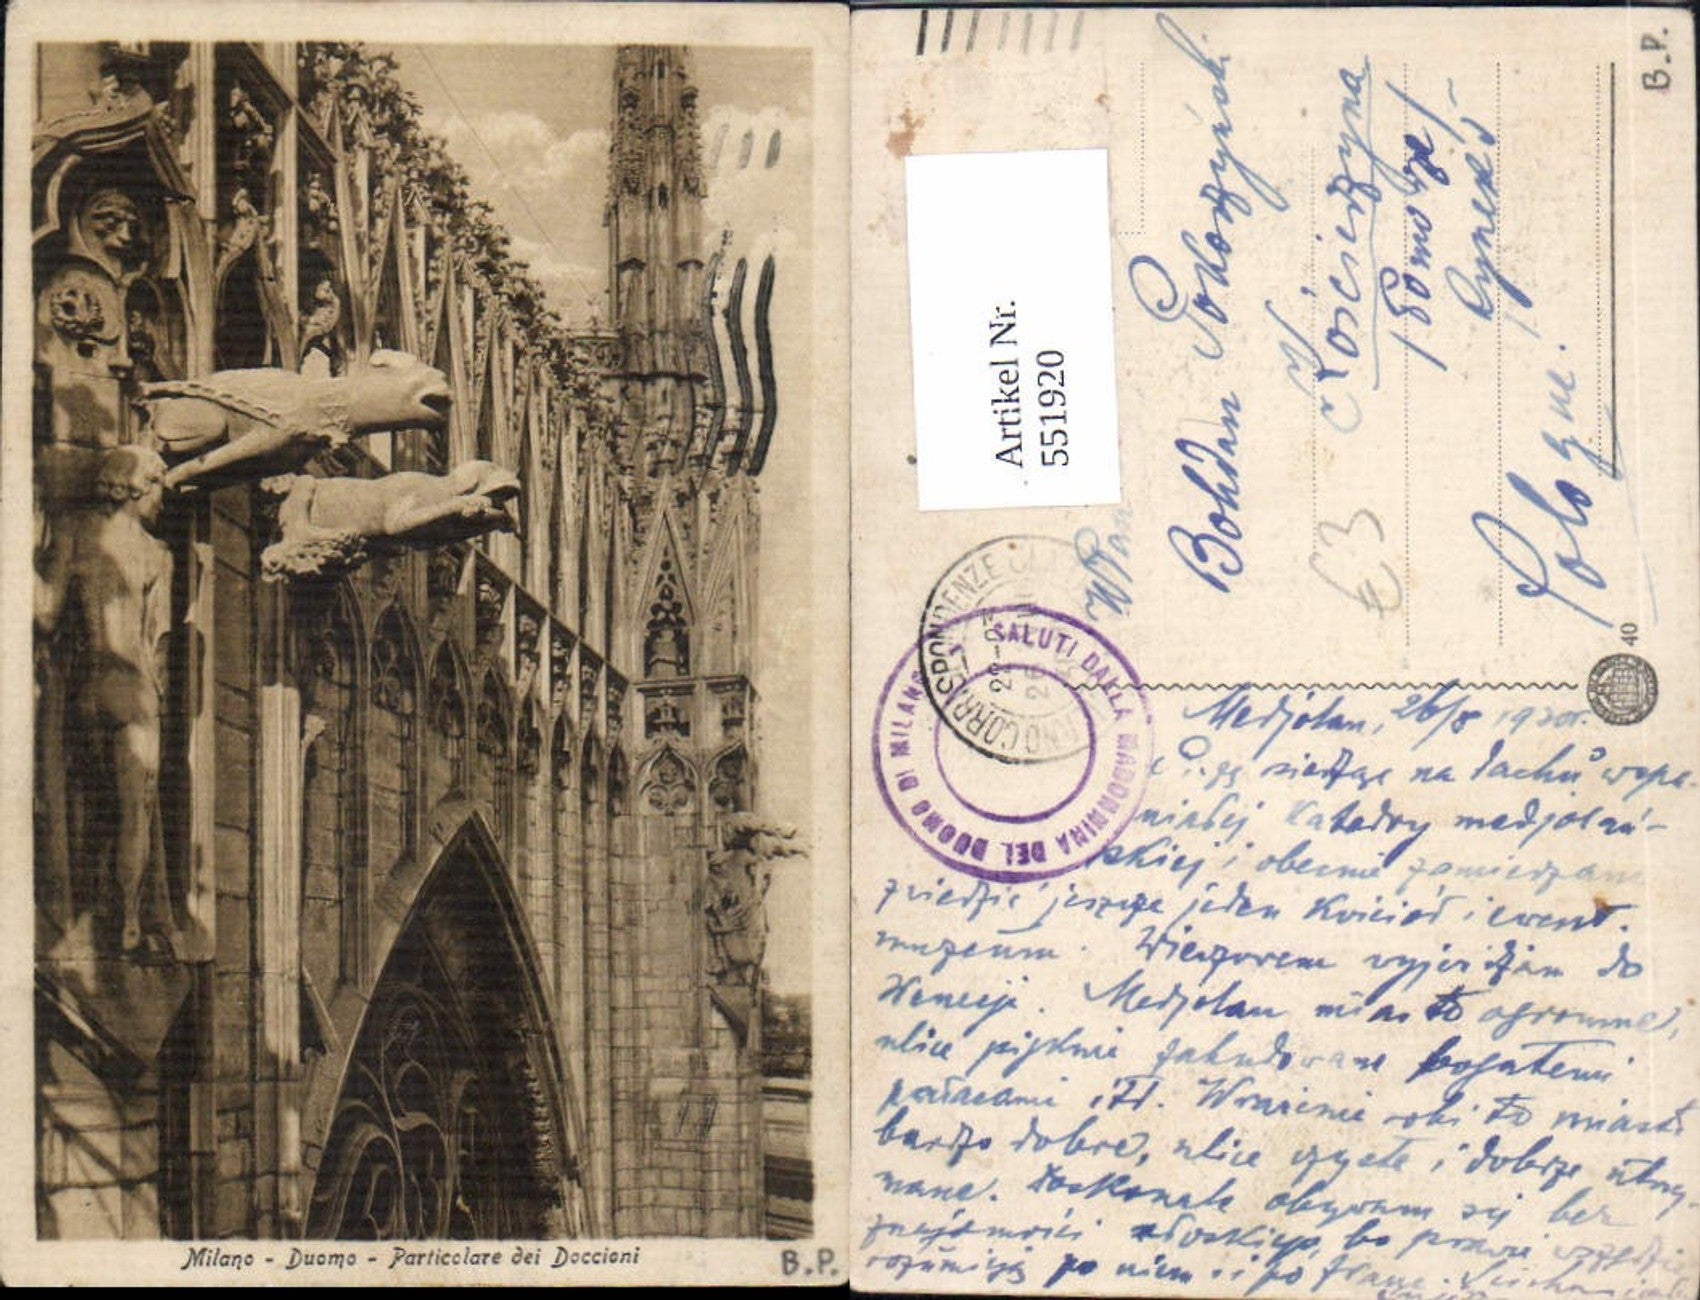 Milano - Duomo - Particolare dei Doccioni
B.P.
B.P.
Artikel Nr.
551920
WPan
Bohdan
Kościerzyna
/Pomorze/
Rynek 5
Pologne!
€3
40
CORRISPONDENZE
SALUTI DALLA MADONNINA DEL DUOMO DI MILANO
Medjolan, 26/8
siedząc na dachu wspa-
niałej Katedry medjolań-
skiej i obecnie zamierzam
zwiedzić jeszcze jeden kościół i ewent.
muzeum. Wieczorem wyjeżdżam do
Wenecji. Medjolan miasto ogromne,
ulice pięknie zabudowane bogatemi
pałacami itd. Wrażenie robi to miasto
bardzo dobre, ulice czyste i dobrze utrzy-
mane. Doskonale obywam się bez
znajomości włoskiego, bo prawie wszędzie
rozumieją po niem. i po franc.